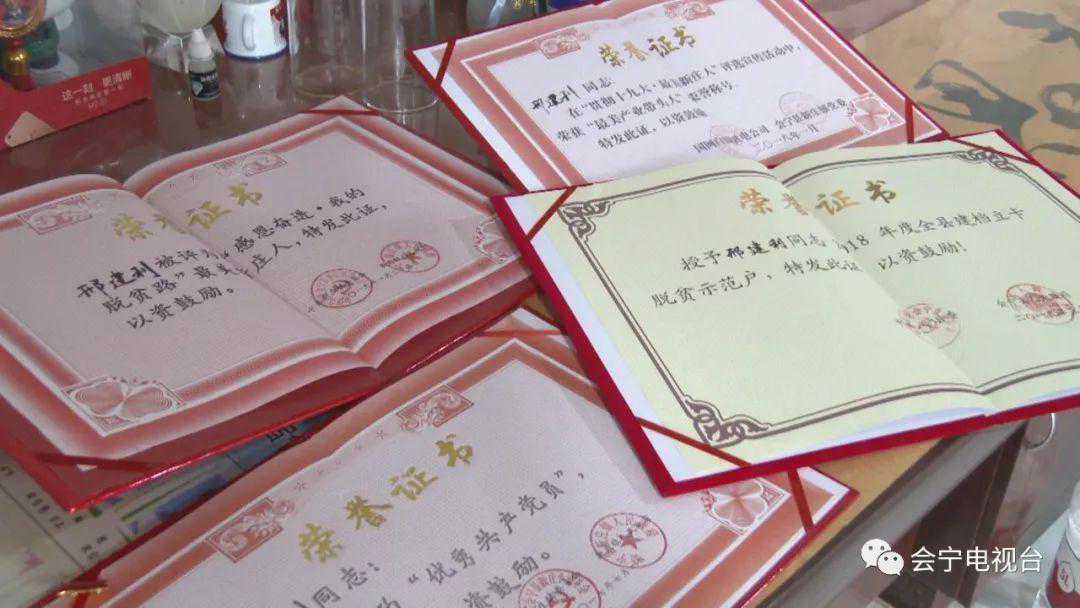 这一刻 更清晰
荣誉证书
邢建利 同志
在"贯彻十九大·最美新庄人"评选宣传活动中,
荣获"最美产业带头人"荣誉称号。
特发此证,以资鼓励
二〇一八年一月
荣誉证书
邢建利 被评为"感恩奋进·我的
脱贫路"最美 庄人,特发此证,
以资鼓励。
荣誉证书
授予邢建利同志 018 年度全县建档立卡
脱贫示范户,特发此证 以资鼓励!
荣誉证书
同志:
"优秀共产党员",
资鼓励。
会宁电视台